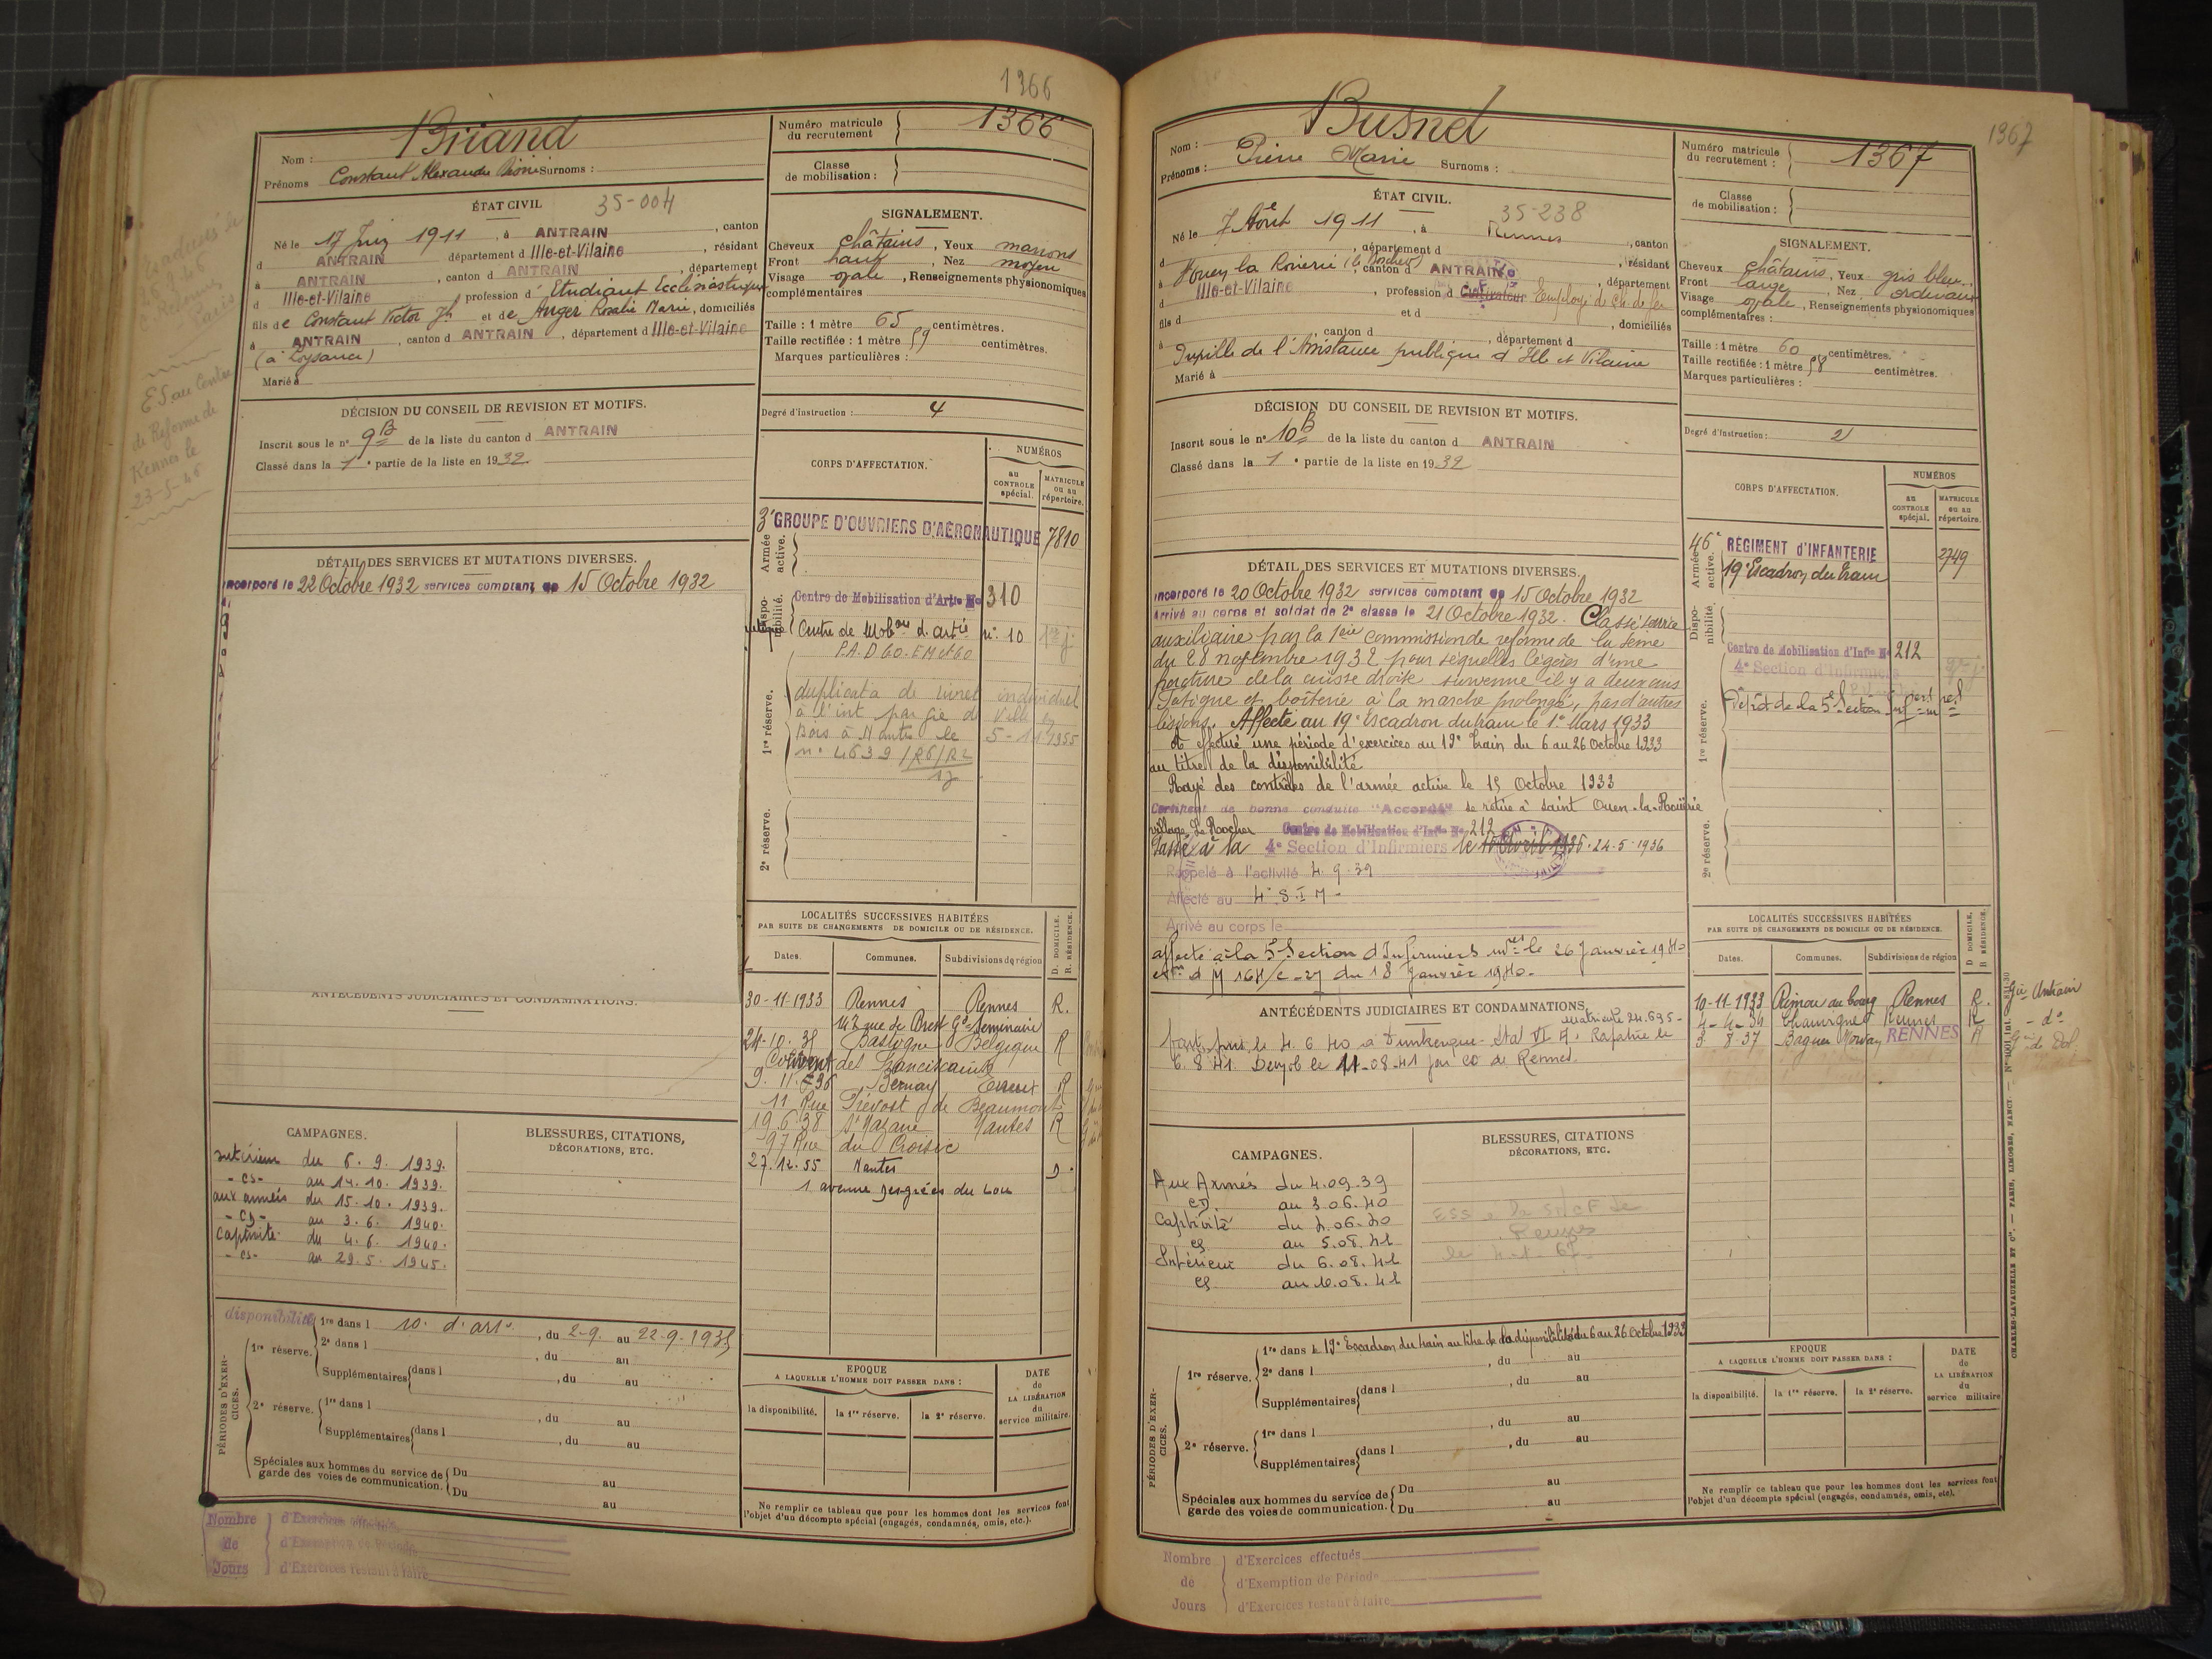 1366
Briand
Nom :
Prénoms Constant Alexandre Surnoms :
Numéro matricule du recrutement 1366
Classe de mobilisation :
ÉTAT CIVIL 35-004
Né le 17 Juin 1911, à ANTRAIN, canton
d ANTRAIN département d Ille-et-Vilaine, résidant
à ANTRAIN, canton d ANTRAIN, département
d Ille-et-Vilaine profession d' Etudiant Ecclésiastique
fils de Constant Victor Jh et de Anger Rosalie Marie, domiciliés
à ANTRAIN, canton d ANTRAIN, département d Ille-et-Vilaine
(à Loysance)
Marié à
SIGNALEMENT.
Cheveux châtains, Yeux marrons
Front haut, Nez moyen
Visage ovale, Renseignements physionomiques
complémentaires
Taille : 1 mètre 65 centimètres.
Taille rectifiée : 1 mètre 59 centimètres.
Marques particulières :
Degré d'instruction : 4
DÉCISION DU CONSEIL DE REVISION ET MOTIFS.
Inscrit sous le n° 9B de la liste du canton d ANTRAIN
Classé dans la 1e partie de la liste en 1932
ES au Centre
de Réforme de
Rennes le
23-5-45
CORPS D'AFFECTATION.
NUMÉROS
au CONTROLE spécial.
MATRICULE ou au répertoire.
Armée active.
3e GROUPE D'OUVRIERS D'AÉRONAUTIQUE 7810
Disponibilité.
Centre de Mobilisation d'Artie No 310
Centre de Mobon d'artie n° 10
P.A.D 60. EM et 60
1re réserve.
duplicata de livret individuel
à l'int par gie de Ville en
Bois à Nantes le 5-11-1955
n° 4639/R6/R2
2e réserve.
DÉTAIL DES SERVICES ET MUTATIONS DIVERSES.
Incorporé le 22 Octobre 1932 services comptant de 15 Octobre 1932
ANTÉCÉDENTS JUDICIAIRES ET CONDAMNATIONS.
LOCALITÉS SUCCESSIVES HABITÉES
PAR SUITE DE CHANGEMENTS DE DOMICILE OU DE RÉSIDENCE.
Dates. Communes. Subdivisions de région D. DOMICILE. R. RÉSIDENCE.
30-11-1933 Rennes Rennes R.
rue de Brest Gd Seminaire
24-10-35 Bastogne Belgique R
Couvent des Franciscains
9. 11. 36 Bernay Evreux R
11 Rue Prévost de Beaumont
19.6.38 St Nazaire Nantes R
97 Rue du Croisic
27.12.55 Nantes D.
1 avenue du Lou
CAMPAGNES.
intérieur du 6. 9. 1939.
- CS - au 14. 10. 1939.
aux armées du 15. 10. 1939.
- CD - au 3. 6. 1940.
captivité du 4. 6. 1940.
- CS - au 29. 5. 1945.
BLESSURES, CITATIONS,
DÉCORATIONS, ETC.
PÉRIODES D'EXERCICES.
disponibilité
1re réserve.
1re dans l 10. d'artie, du 2-9. au 22-9-1935
2e dans l, du au
Supplémentaires dans l, du au
2e réserve.
1re dans l, du au
Supplémentaires dans l, du au
Spéciales aux hommes du service de garde des voies de communication. Du au
Du au
EPOQUE
A LAQUELLE L'HOMME DOIT PASSER DANS :
la disponibilité. la 1re réserve. la 2e réserve.
DATE de LA LIBÉRATION du service militaire.
Ne remplir ce tableau que pour les hommes dont les services font
l'objet d'un décompte spécial (engagés, condamnés, omis, etc.).
Nombre de Jours
d'Exercices effectués
d'Exemption de Période
d'Exercices restant à faire
1367
Busnel
Nom :
Prénoms : Pierre Marie Surnoms :
Numéro matricule du recrutement : 1367
Classe de mobilisation :
ÉTAT CIVIL. 35-238
Né le 7 Août 1911, à Rennes, canton
d, département d, résidant
à St Ouen la Rouerie (le Rocher), canton d ANTRAIN, département
d Ille-et-Vilaine, profession d Cultivateur Employé de Ch. de fer
fils d et d, domiciliés
à, canton d, département d
Pupille de l'Assistance publique d'Ille et Vilaine
Marié à
SIGNALEMENT.
Cheveux châtains, Yeux gris bleu
Front large, Nez ordinaire
Visage ovale, Renseignements physionomiques
complémentaires :
Taille : 1 mètre 60 centimètres.
Taille rectifiée : 1 mètre 58 centimètres.
Marques particulières :
Degré d'instruction : 2
DÉCISION DU CONSEIL DE REVISION ET MOTIFS.
Inscrit sous le n° 10B de la liste du canton d ANTRAIN
Classé dans la 1e partie de la liste en 1932
CORPS D'AFFECTATION.
NUMÉROS
au CONTROLE spécial.
MATRICULE ou au répertoire.
Armée active.
46e RÉGIMENT d'INFANTERIE 2749
19e Escadron du train
Disponibilité.
Centre de Mobilisation d'Infie No 212
4e Section d'Infirmiers
1re réserve.
Dépôt de la 5e Section
2e réserve.
DÉTAIL DES SERVICES ET MUTATIONS DIVERSES.
Incorporé le 20 Octobre 1932 services comptant de 15 Octobre 1932
Arrivé au corps et soldat de 2e classe le 21 Octobre 1932. Classé service
auxiliaire par la 1ère commission de réforme de la Seine
du 28 novembre 1932 pour séquelles légères d'une
fracture de la cuisse droite survenue il y a deux ans
Fatigue et boiterie à la marche prolongée, pas d'autres
lésions. Affecté au 19e Escadron du train le 1er Mars 1933
A effectué une période d'exercices au 19e Train du 6 au 26 Octobre 1933
au titre de la disponibilité
Rayé des contrôles de l'armée active le 15 Octobre 1933
Certificat de bonne conduite "Accordé" se retire à Saint Ouen-la-Rouërie
village Le Rocher Centre de Mobilisation d'Infie No 212
Passé à la 4e Section d'Infirmiers le 24.5.1936
Rappelé à l'activité 4.9.39
Affecté au 4e S.I.M.
Arrivé au corps le
affecté à la 5e Section d'Infirmiers mres le 26 Janvier 1940
du 18 Janvier 1940.
ANTÉCÉDENTS JUDICIAIRES ET CONDAMNATIONS.
Matricule 24.695
Fait pris. le 4. 6 40 à Dunkerque - Stal VI A. Rapatrié le
6.8.41. Démob le 11-08-41 par CD de Rennes.
LOCALITÉS SUCCESSIVES HABITÉES
PAR SUITE DE CHANGEMENTS DE DOMICILE OU DE RÉSIDENCE.
Dates. Communes. Subdivisions de région D DOMICILE, R RÉSIDENCE.
10-11-1933 Rimou au bourg Rennes R. Gie Antrain
4-4-34 Chauvigné Rennes R - do -
3. 8-37 Baguer Morvan RENNES R Gie de Dol
CAMPAGNES.
Aux Armés du 4.09.39
CD. au 3.06.40
Captivité du 4.06.40
CS au 5.08.41
Intérieur du 6.08.41
CS au 10.08.41
BLESSURES, CITATIONS
DÉCORATIONS, ETC.
ESS à la SNCF de
Rennes
PÉRIODES D'EXERCICES.
1re réserve.
1re dans le 19e Escadron du train au titre de la disponibilité du 6 au 26 Octobre 1933
2e dans l, du au
Supplémentaires dans l, du au
2e réserve.
1re dans l, du au
Supplémentaires dans l, du au
Spéciales aux hommes du service de garde des voies de communication. Du au
Du au
EPOQUE
A LAQUELLE L'HOMME DOIT PASSER DANS :
la disponibilité. la 1re réserve. la 2e réserve.
DATE de LA LIBÉRATION du service militaire
Ne remplir ce tableau que pour les hommes dont les services font
l'objet d'un décompte spécial (engagés, condamnés, omis, etc).
Nombre de Jours
d'Exercices effectués
d'Exemption de Période
d'Exercices restant à faire
CHARLES-LAVAUZELLE ET Cie. — PARIS, LIMOGES, NANCY.